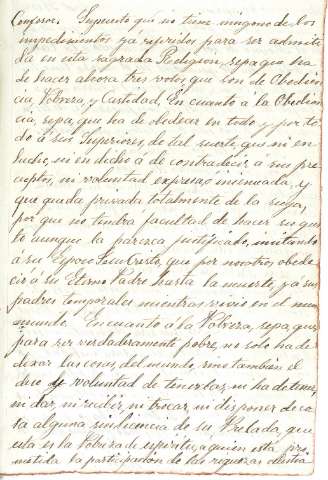 Confesor. Supuesto que no tiene ninguno de los
impedimentos ya referidos para ser admiti
da en esta sagrada Religion, sepa que ha
de hacer ahora tres votos que son de Obedien
cia, Pobreza, y Castidad, En cuanto a la Obedien
cia, sepa, que ha de obedecer en todo y por to
do á sus Superiores, de tal suerte, que ni en
hecho, ni en dicho á de contradecir á sus pre
ceptos, ni voluntad expresa, ó insinuada, y
que queda privada totalmente de la suya,
por que no tendra facultad de hacer su gus
to aunque la paresca justificado, imitando
á su Esposo Jesucristo, que por nosotros obede
ció á su Eterno Padre hasta la muerte, y a sus
padres temporales mientras vivió en el mun
mundo. En cuanto á la Pobreza, sepa, que
para ser verdaderamente pobre, no solo ha de
dejar las cosas del mundo, sino también el
deseo y voluntad de tenerlas, ni ha de tener,
ni dar, ni recibir, ni trocar, ni disponer de co
sa alguna sin licencia de su Prelada, que
esta es la Pobreza de espiritu, a quien está pro
metida la participación de las riquezas